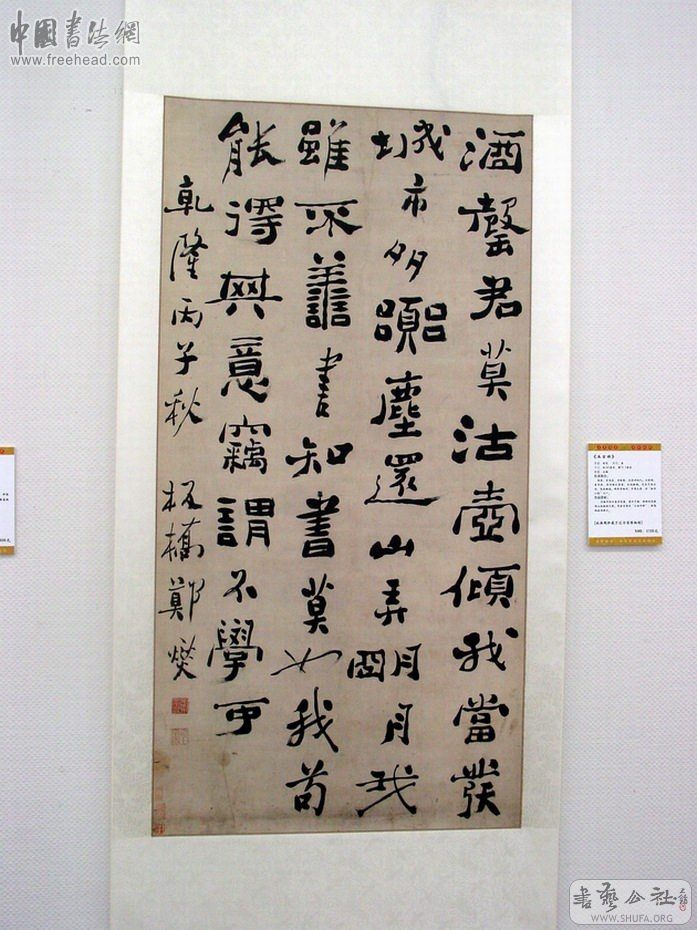 中國書法網
www.freehead.com
酒罄君莫沽壺傾我當發
城市多囂塵還山弄明月我
雖不善書知書莫如我苟
能得其意竊謂不學可
乾隆丙子秋 板橋鄭燮
書藝公社
WWW.SHUFA.ORG